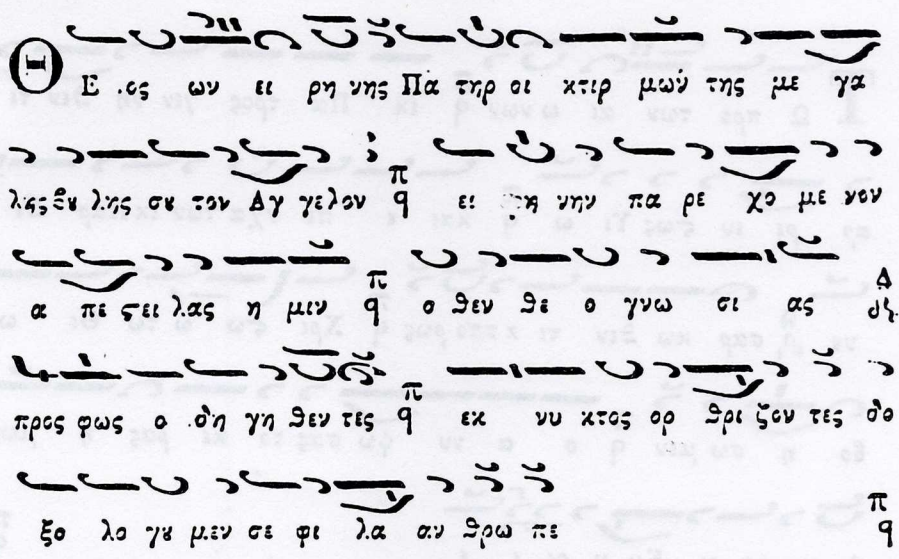 Θ Ε ος ων ει ρη νης Πα τηρ οι κτιρ μων της με γα
λης βȣ λης σȣ τον Αγ γελον π q ει ρη νην πα ρε χο με νον
α πε ϛει λας η μιν π q ο θεν θε ο γνω σι ας Δ
προς φως ο δη γη θεν τες π q εκ νυ κτος ορ θρι ζον τες δο
ξο λο γȣ μεν σε φι λα αν θρω πε π q